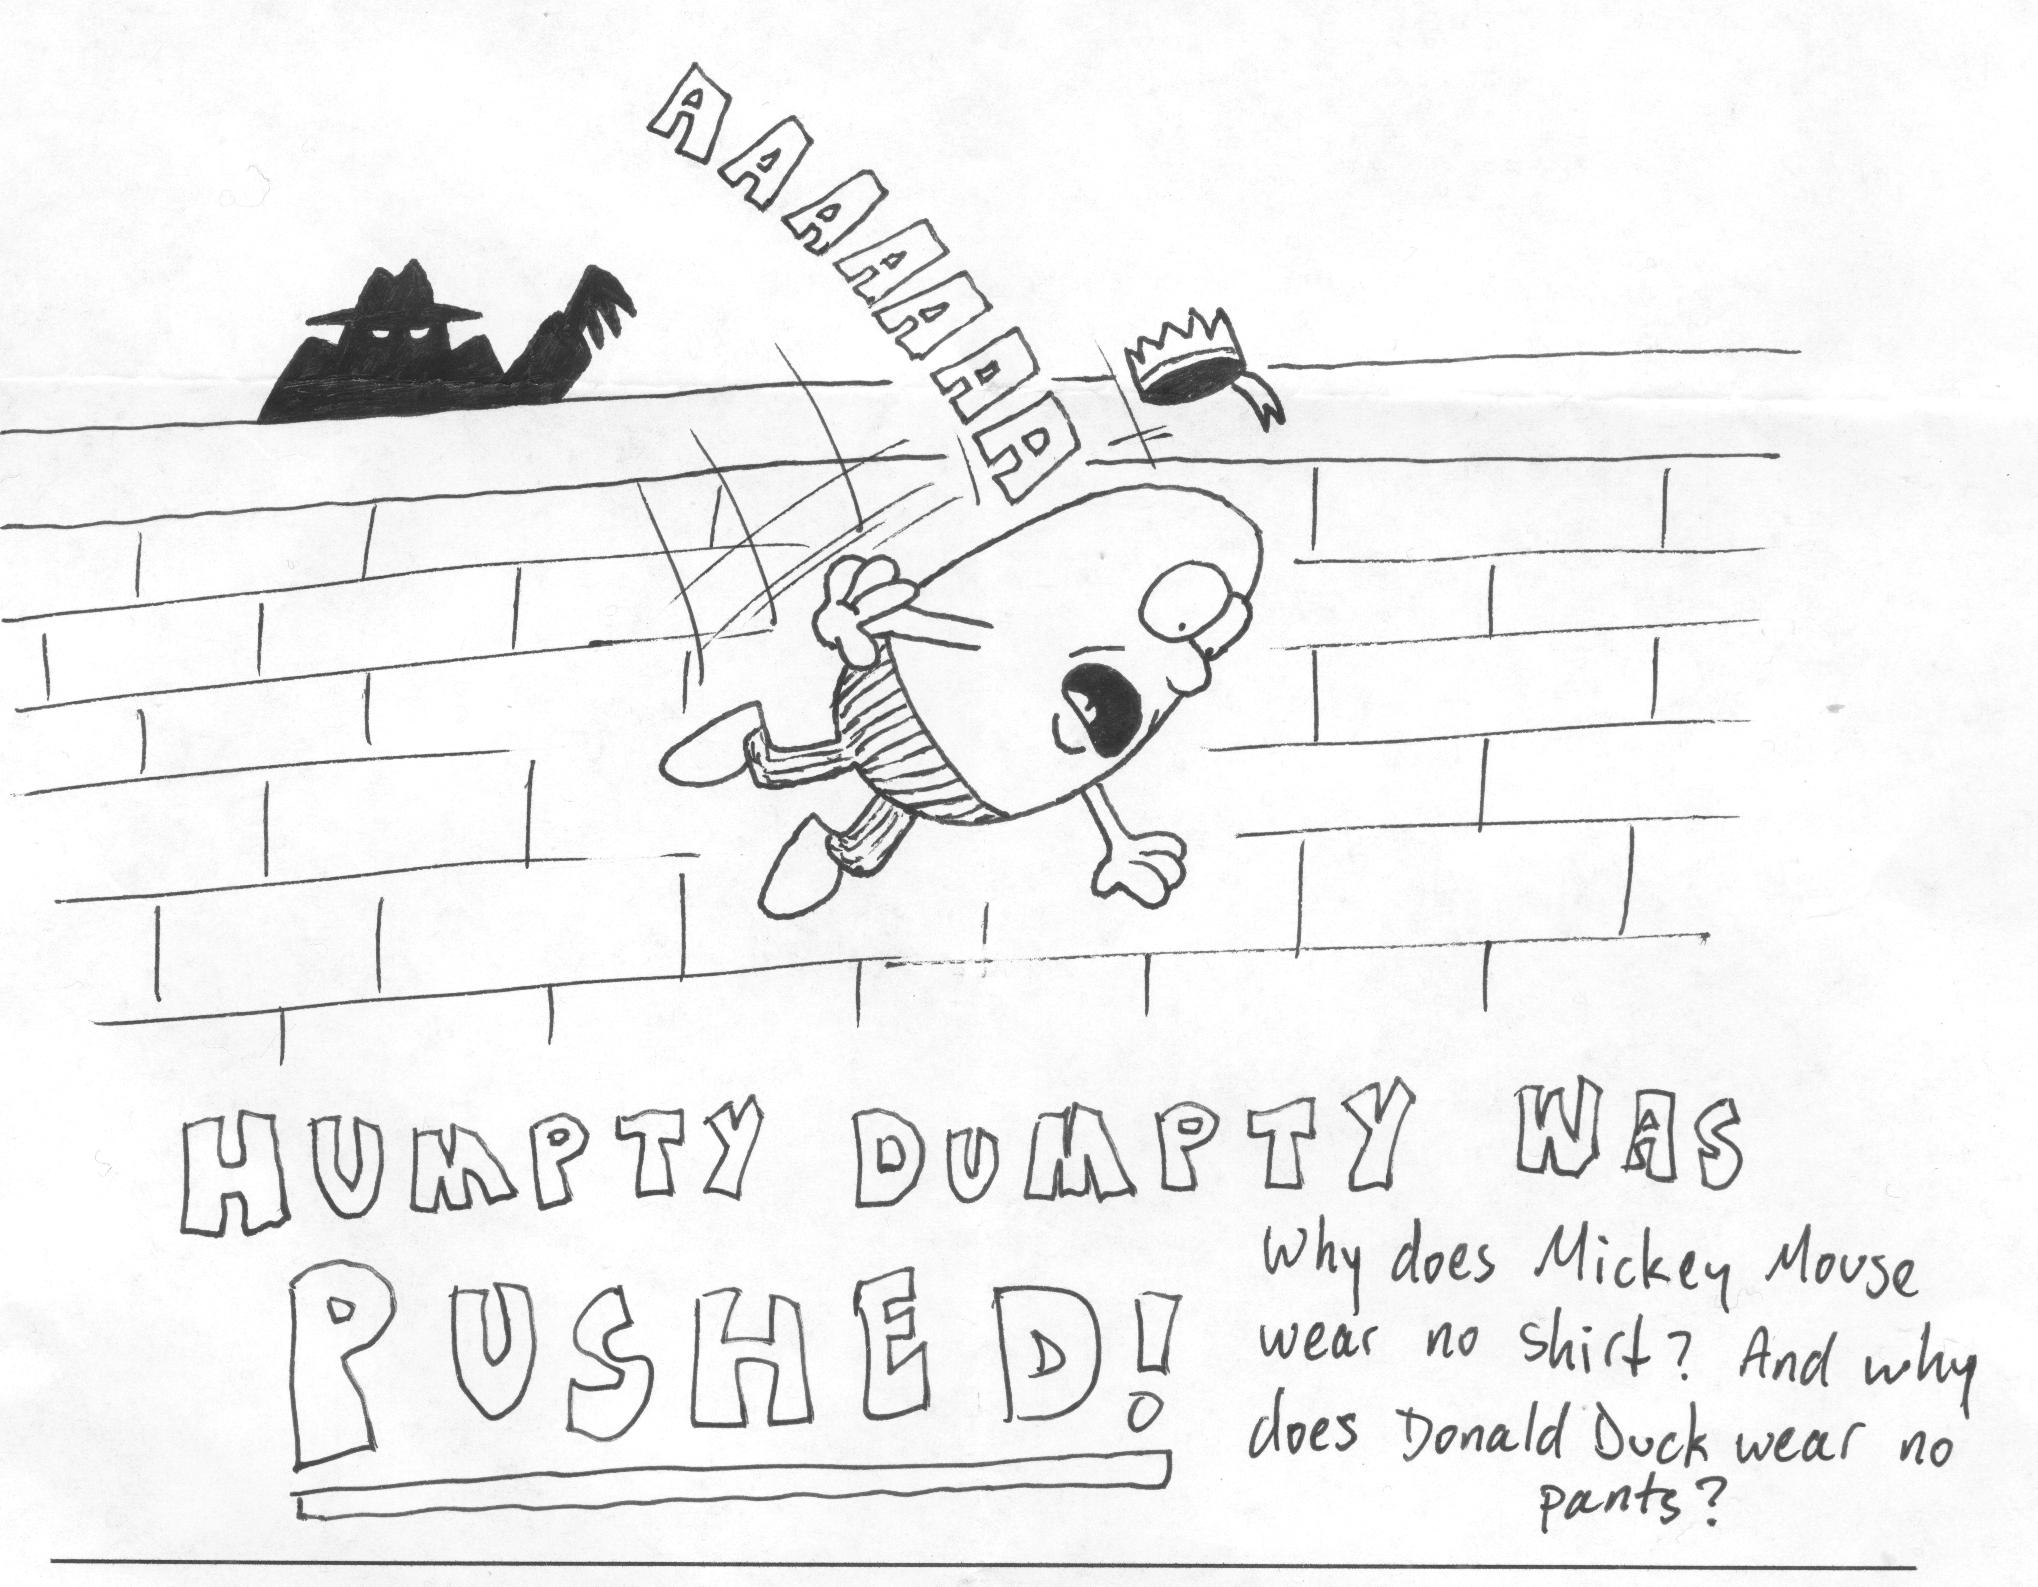 AAAAAAA
HUMPTY DUMPTY WAS
PUSHED!
Why does Mickey Mouse
wear no shirt? And why
does Donald Duck wear no
pants?